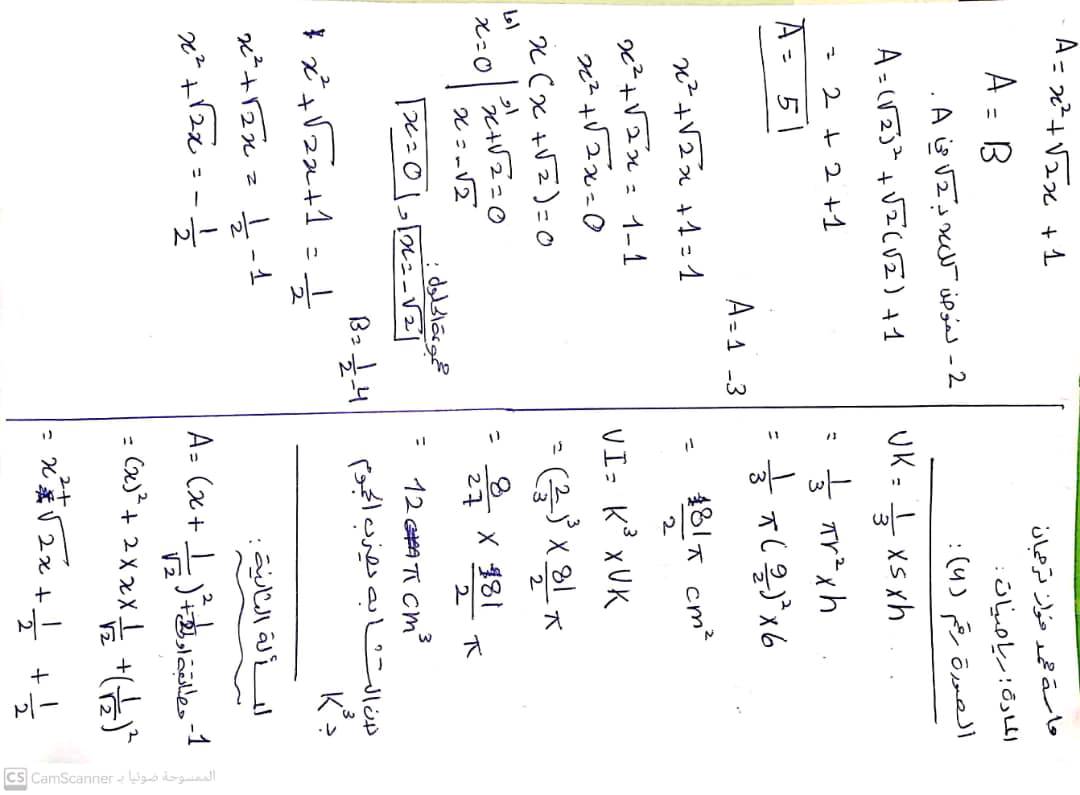 ماسة محمد فواز ترجمان
المادة: رياضيات:
الصورة رقم (4):
VK = 1/3 × S × h
= 1/3 πr² × h
= 1/3 π (9/2)² × 6
= 81/2 π cm²
VI = K³ × VK
= (2/3)³ × 81/2 π
= 8/27 × 81/2 π
= 12 π cm³
لأن التشابه يضرب الحجوم
بـ K³
المسألة الثانية:
1- مطابقة أولى
A = (x + 1/√2)² + 1/2
= (x)² + 2 × x × 1/√2 + (1/√2)²
= x² + √2x + 1/2 + 1/2
A = x² + √2x + 1
A = B
2- نعوض كل x بـ √2 في A.
A = (√2)² + √2(√2) + 1
= 2 + 2 + 1
A = 5
3- A = 1
x² + √2x + 1 = 1
x² + √2x = 1-1
x² + √2x = 0
x (x + √2) = 0
إما x = 0 | أو x + √2 = 0
x = -√2
مجموعة الحلول:
x = 0 و x = -√2
4- B = 1/2
x² + √2x + 1 = 1/2
x² + √2x = 1/2 - 1
x² + √2x = - 1/2
الممسوحة ضوئيا بـ CamScanner
CS